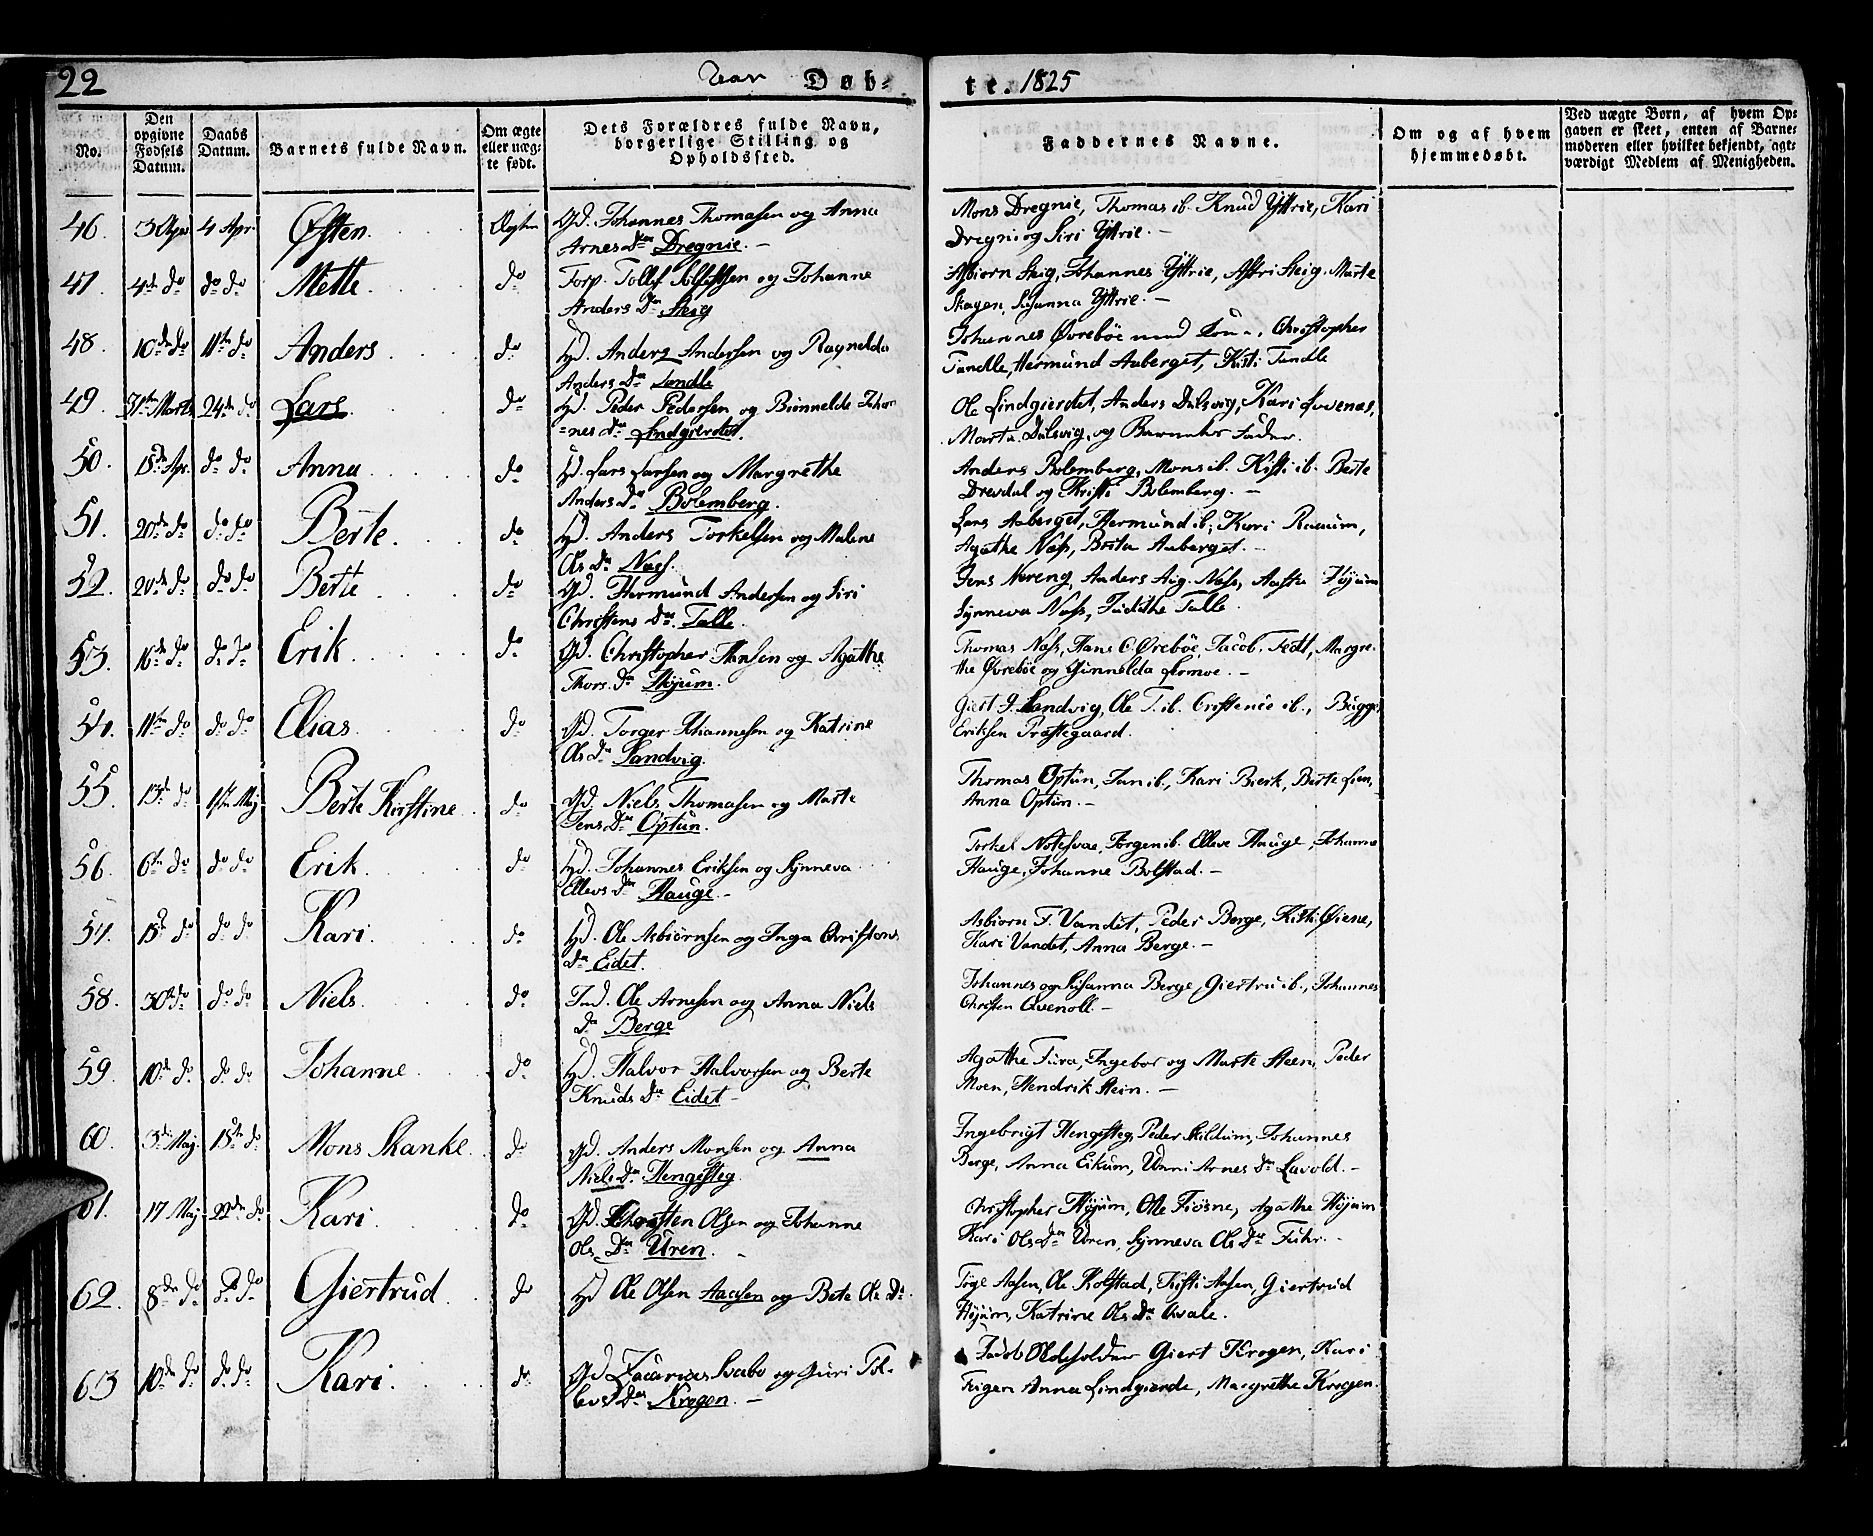 22
Aar Døb-
te. 1825
No.
Den opgivne Fødsels Datum.
Daabs Datum.
Barnets fulde Navn.
Om ægte eller uægte født.
Dets Forældres fulde Navn, borgerlige Stilling og Opholdssted.
Faddernes Navne.
Om og af hvem hjemmedøbt.
Ved uægte Børn, af hvem Opgaven er skeet, enten af Barnemoderen eller hvilket bekjendt, agtværdigt Medlem af Menigheden.
46. 3 Apr 4 Apr. Østen. Ægten Gd. Johannes Thomasen og Anna
Arnes Dr. Dregnie. –
Mons Dregnie, Thomas ib. Knud Yttrie, Kari
Dregni og Siri Yttrie. –
47. 4de do do do Mette. do Torp. Tollef og Johanne
Anders Dr. Steig
Asbiorn Steig, Johannes Yttrie, Astri Steig, Marte
Skagen, Susanna Yttrie. –
48. 10de do 11te do Anders do Hd. Anders Andersen og Ragnelda
Anders Dr. Tandle
Johannes Øvrebøe med Kone, Christopher
Tandle, Hermund Aaberget, Kisti Tandle
49. 31te Marts 24de do Lars. do Hd. Peder Pedersen og Brinnelde Johan
=nes Dr. Lindgierdet.
Ole Lindgierdet, Anders Dalsvig, Kari
Marta Dalsvig, og Barnets Fader.
50. 15de Apr. do do Anna do Hd. Lars Larsen og Margrethe
Anders Dr. Bolemberg.
Anders Bolemberg, Mons ib. Kisti ib. Berte
Drevdal og Kristi Bolemberg. –
51. 20de do do do Berte. do Hd. Anders Torkelsen og Malene
Ols Dr. Næs.
Lars Aaberget, Hermund ib; Kari Raaum,
Agathe Næss, Brita Aaberget. –
52. 20de do do do Berte do Gd. Hermund Andersen og Siri
Christens Dr. Talle.
Jens Noreng, Anders Aug. Næss, Aasta Høium
Synneva Næss, Judithe Talle.
53. 16de do do do Erik do Gd. Christopher Hansen og Agathe
Thors. Dr. Høyum.
Thomas Næss, Hans C. Ørebøe, Jacob. Fedt, Margre-
the Øvrebøe og Gunnelda Lomoe. –
54. 11te do do do Elias do Gd. Torger Johannesen og Katrine
Ols Dr. Sandvig.
Giert J. Sandvig, Ole T. ib. Cristense ib., Bugge
Eriksen Præstegaard.
55. 13de do 1ste Maj Berte Kirstine do Gd. Niels Thomasen og Marte
Jens Dr. Optun.
Thomas Optun, Jan ib., Kari Bierk, Berte Lien,
Anna Optun. –
56. 6te do do do Erik. do Hd. Johannes Eriksen og Synneva
Ellevs Dr. Hauge –
Torkel Notesvae, Jørgen ib. Elleve Hauge, Johanne
Hauge, Johanne Bolstad. –
57. 15de do do do Kari. do Hd. Ole Asbiørnsen og Inga Christens
Dr. Eidet.
Asbiorn F. Vandet, Peder Berge, Kisti Øiene,
Kari Vandet, Anna Berge. –
58. 30te do do do Niels. do Ind. Ole Arnesen og Anna Niels
Dr. Berge
Johannes og Susanna Berge, Giertru ib., Johannes
Christen Qvenoll. –
59. 10de do do do Johanne do Hd. Halvor Halvorsen og Berte
Knuds Dr. Eidet –
Agathe Fura, Ingebor og Marte Steen, Peder
Moen, Hendrik Stein. –
60. 3de Maj. 15de do Mons Skanke. do Gd. Anders Monsen og Anna
Niels Dr. Hengesteg.
Ingebrigt Hengesteg, Peder Skildum, Johannes
Berge, Anna Eikum, Unni Arnes Dr. Lavold. –
61. 17 Maj 22de do Kari do Gd. Christen Olsen og Johanne
Ols. Dr. Uren. –
Christopher Høyum, Ole Fiøsne, Agathe Høyum
Kari Ols Dr. Uren, Synneva Ols Dr. Fuhr. –
62. 8de do do do Giertrud do Hd Ole Olsen Aaasen og Bete Ole Dr.
Tøge Aasen, Ole Kolstad, Kisti Aasen, Giertrud
Højum, Katrine Ols Dr. Qvale.
63 10de do do do Kari. do Gd Zacarias Svabo og Guri Tol-
levs Dr. Krogen. –
Jacob Giert Krogen, Kari
Teigen Anna Lindgierde, Margrethe Krogen.